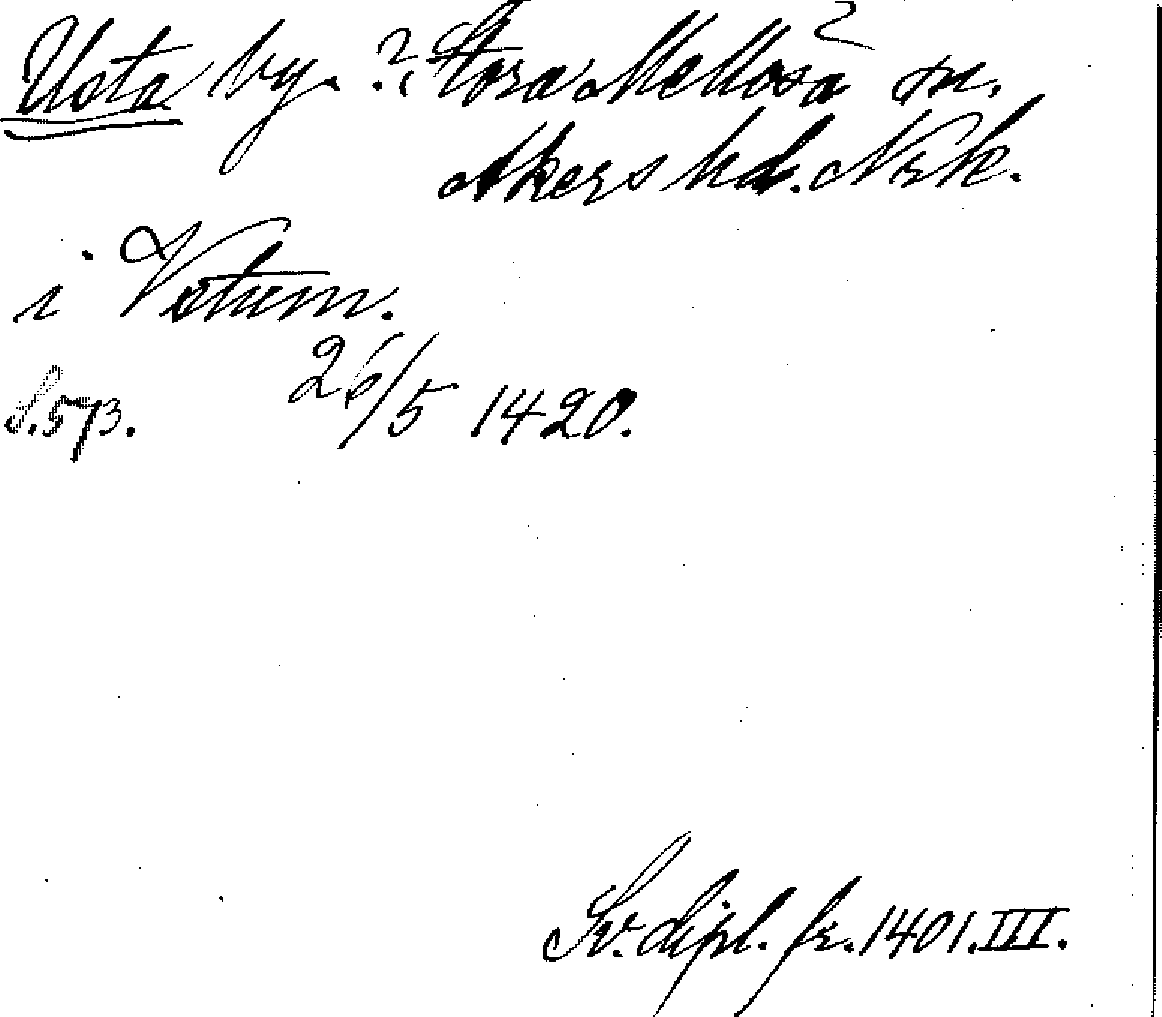 Usta by. ? Stora Mellösa ? sn.
Askers hd. Nrk.
i Vstum.
S. 573. 26/5 1420.
Sv. dipl. fr. 1401. III.